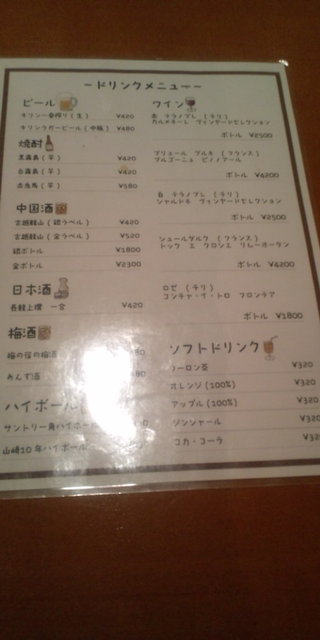 ードリンクメニューー
ビール
キリン一番搾り(生) ¥420
キリンラガービール(中瓶) ¥480
焼酎
黒霧島(芋) ¥420
白霧島(芋) ¥420
赤兎馬(芋) ¥580
中国酒
古越龍山(銀ラベル) ¥420
古越龍山(金ラベル) ¥520
銀ボトル ¥1800
金ボトル ¥2300
日本酒
長龍上撰 一合 ¥420
梅酒
梅の宿の梅酒 80
あんず酒 80
ハイボール
サントリー角ハイボール 0
山崎10年ハイボール
ワイン
赤 テラノブレ (チリ)
カルメネーレ ヴィンヤードセレクション
ボトル ¥2500
ブリュール ブルキ (フランス)
ブルゴーニュ ピノノアール
ボトル ¥4200
白 テラノブレ (チリ)
シャルドネ ヴィンヤードセレクション
ボトル ¥2500
(フランス)
ボトル ¥4200
ロゼ (チリ)
コンチャ・イ・トロ フロンテラ
ボトル ¥1800
ソフトドリンク
ウーロン茶 ¥320
オレンジ(100%) ¥320
アップル(100%) ¥320
ジンジャール ¥320
コカ・コーラ ¥32